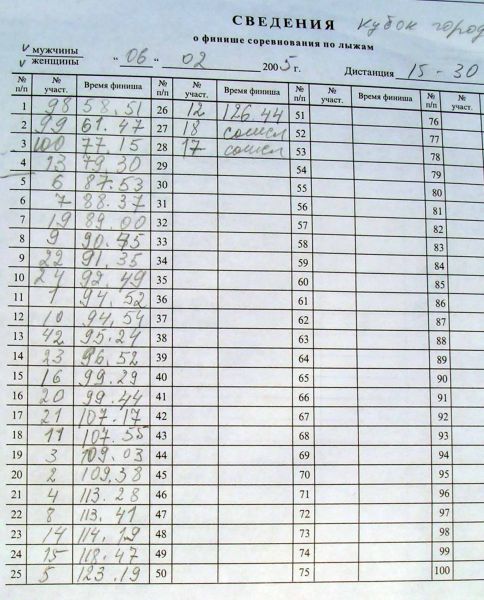 СВЕДЕНИЯ Кубок город
о финише соревнования по лыжам
мужчины
женщины " 06 " 02 2005 г. Дистанция 15-30
№ п/п № участ. Время финиша № п/п № участ. Время финиша № п/п № участ. Время финиша № п/п № участ.
1 98 58.51 26 12 126.44 51 76
2 99 61.47 27 18 сошел 52 77
3 100 77.15 28 17 сошел 53 78
4 13 79.30 29 54 79
5 6 87.53 30 55 80
6 7 88.37 31 56 81
7 19 89.00 32 57 82
8 9 90.45 33 58 83
9 22 91.35 34 59 84
10 24 92.49 35 60 85
11 1 94.52 36 61 86
12 10 94.54 37 62 87
13 42 95.24 38 63 88
14 23 96.52 39 64 89
15 16 99.29 40 65 90
16 20 99.44 41 66 91
17 21 107.17 42 67 92
18 11 107.55 43 68 93
19 3 109.03 44 69 94
20 2 109.38 45 70 95
21 4 113.28 46 71 96
22 8 113.41 47 72 97
23 14 114.19 48 73 98
24 15 118.47 49 74 99
25 5 123.19 50 75 100